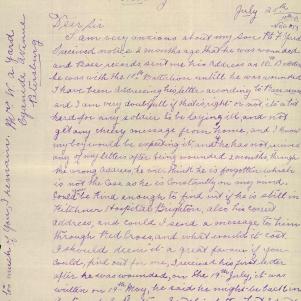 July 25th
Dear Sir
I am very anxious about my son, Pte F Yard
I received notice 2 months ago that he was wounded
and Base records sent me his address as 10th Battalion
he was with the 11th Battalion until he was wounded
I have been addressing his letters according to
and I am very doubtful if that is right or not its a bit
hard for any soldier to be laying ill and not
get any cheery message from home, and I know
my boy would be expecting it and he has not received
any of my letters after being wounded 2 months through
the wrong address, he will think he is forgotten which
is not the case as he is constantly on my mind.
Could you be kind enough to find out if he is still in
Kitchener Hospital Brighton, also his correct
address, and could I send a message to him
through Red Cross, and what would it cost.
I should deem it a great favour if you
could find out for me, I received his first letter
after he was wounded, on the 19th July, it was
written on 19th May, he said he might be back in
too much of you, I remain, Mrs W A Yard
Esplanade Avenue
Petersburg